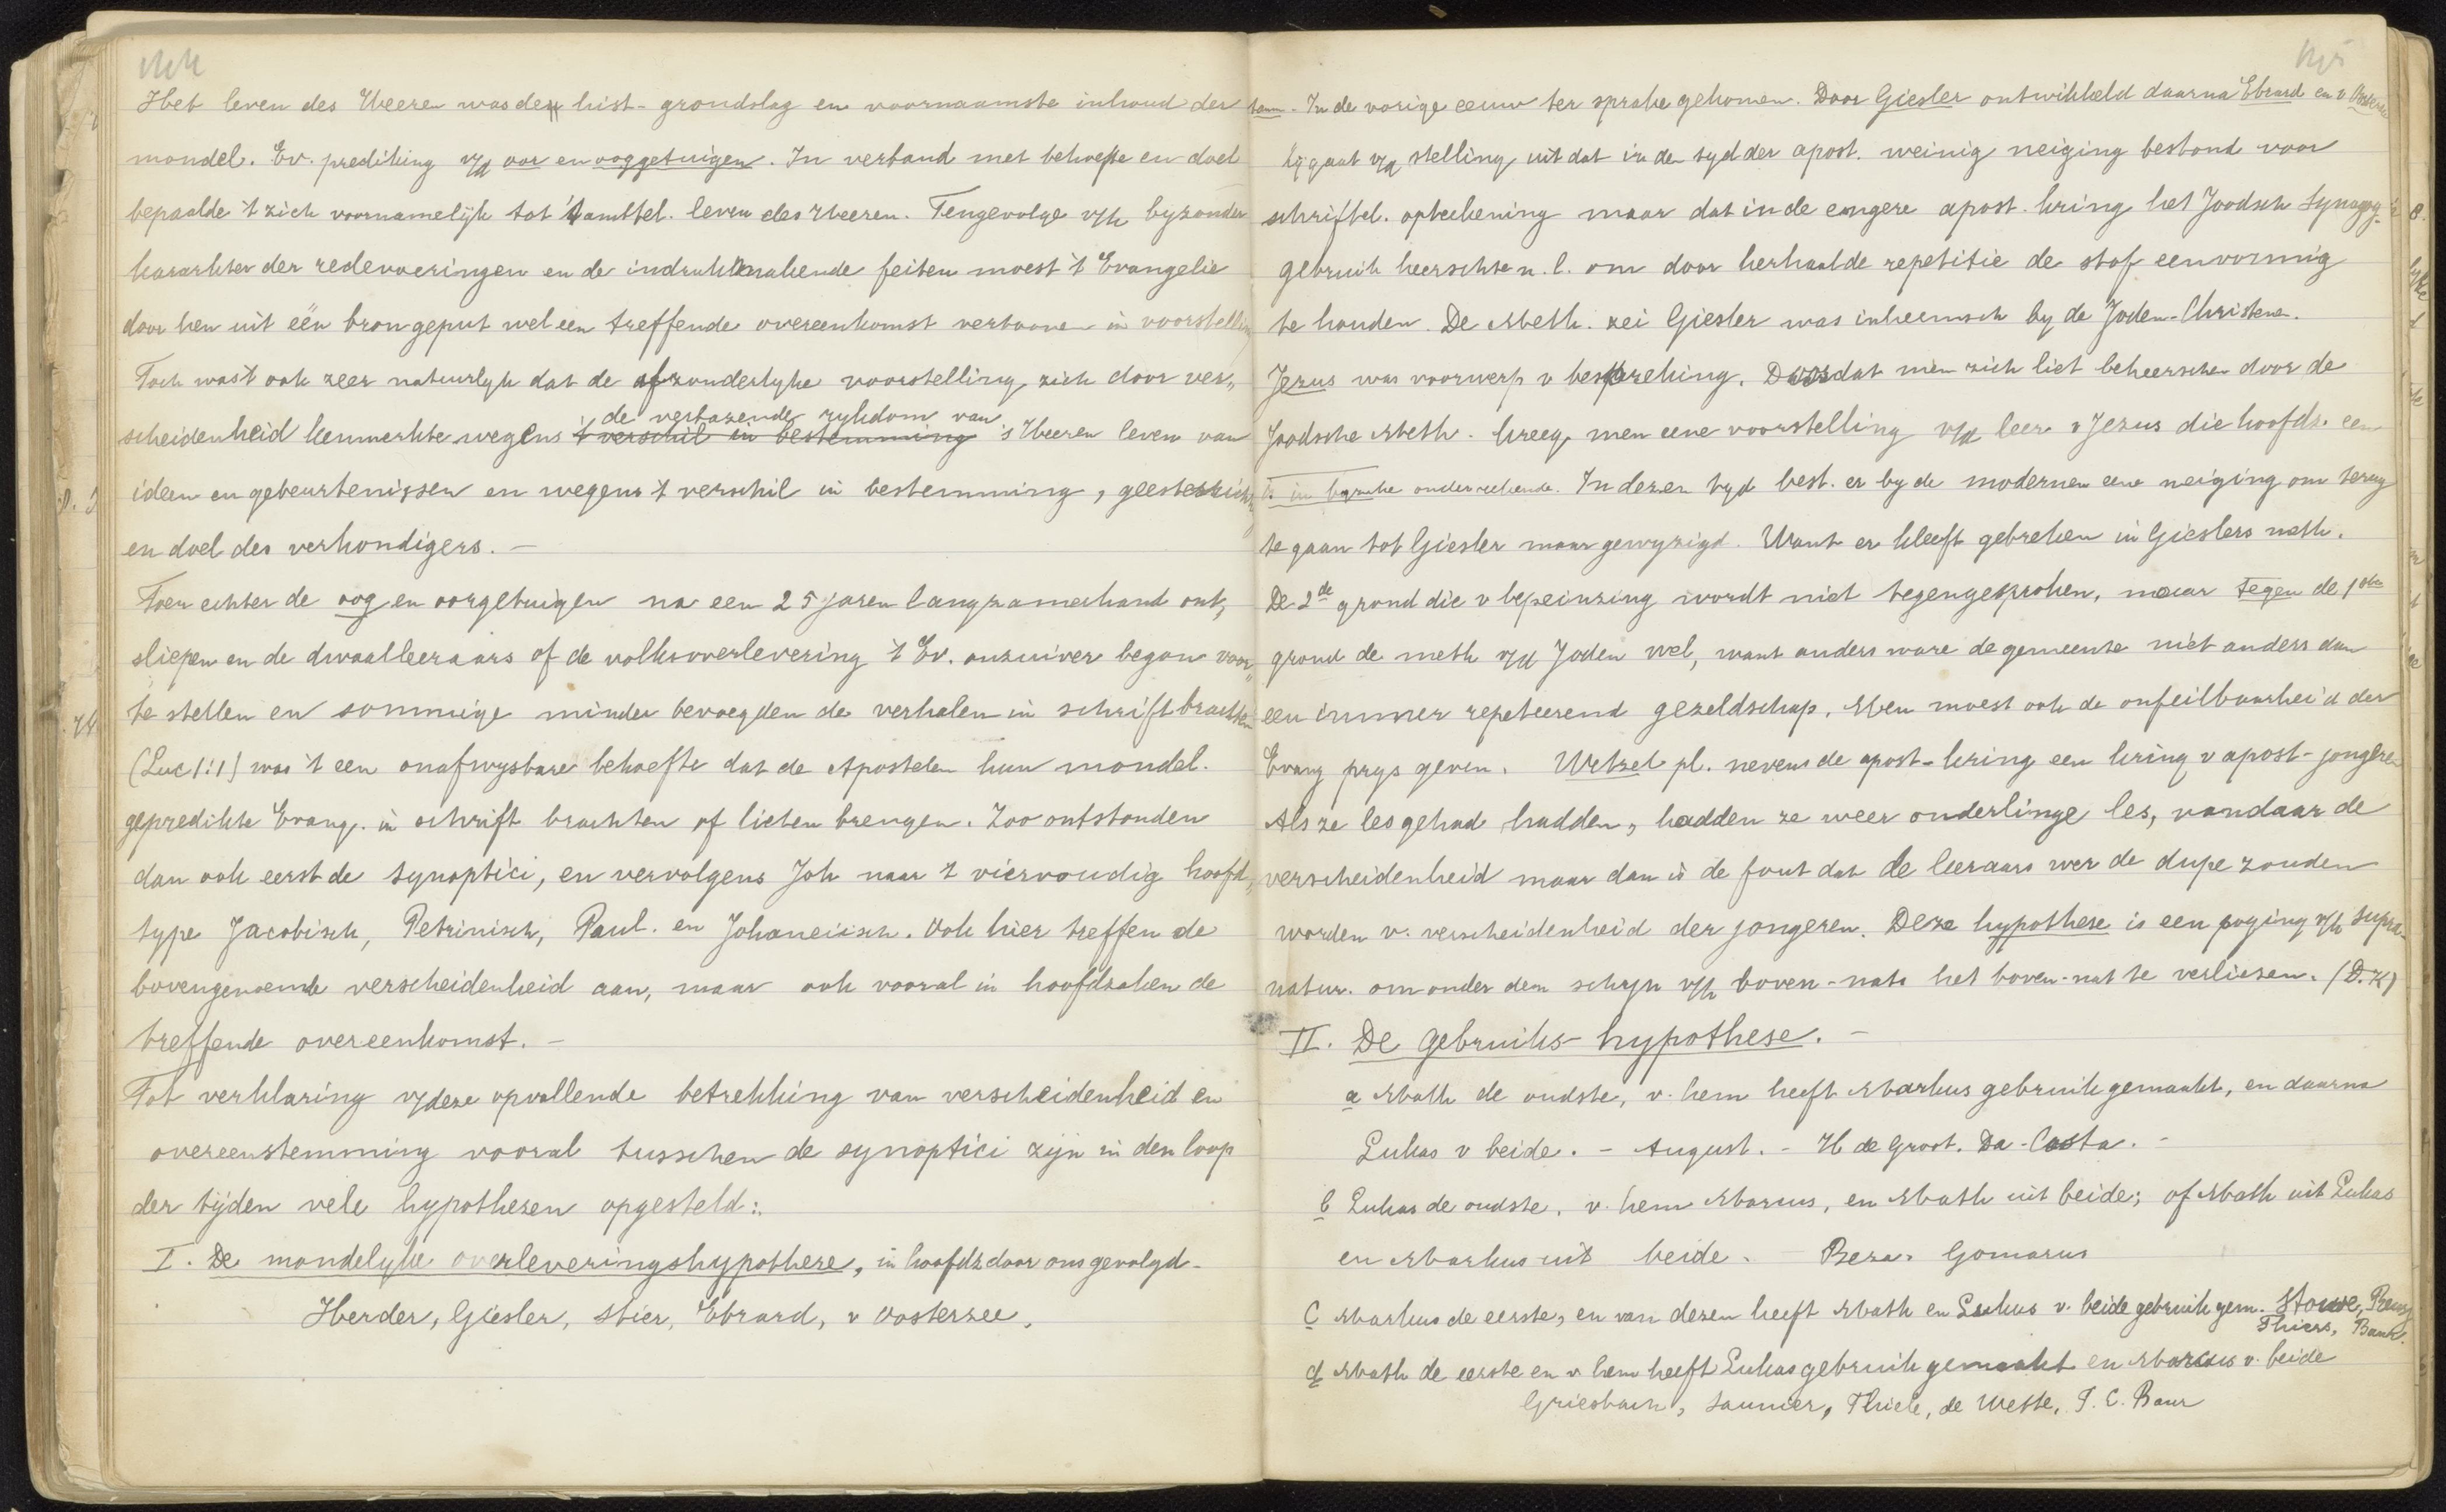 Het leven des Heeren was de hist- grondslag en voornaamste inhoud der
mondel. Ev. prediking v/d oor en ooggetuigen. In verband met behoefte en doel
bepaalde 't zich voornamelijk tot 't ambtel. leven des Heeren. Tengevolge v/h byzonder
karakter der redevoeringen en de indrukmakende feiten moest 't Evangelie
door hen uit één bron geput wel een treffende overeenkomst vertoonen in voorstelling
Toch was 't ook zeer natuurlyk dat de afzonderlyke voorstelling zich door ver,,
de verbazende rykdom van
scheidenheid kenmerkte wegens 't verschil in bestemming 's Heeren leven van
ideen en gebeurtenissen en wegens 't verschil in bestemming, geestesrich
en doel des verkondigers. –
Toen echter de oog en oorgetuigen na een 25 jaren langzamerhand ont,,
sliepen en de dwaalleeraars of de volksoverlevering 't Ev. onzuiver begon voor,,
te stellen en sommige minder bevoegden de verhalen in schrift brachten
(Luc 1:1) was 't een onafwysbare behoefte dat de Apostelen hun mondel.
gepredikte Evang. in schrift brachten of lieten brengen. Zoo ontstonden
dan ook eerst de synoptici, en vervolgens Joh naar 't viervoudig hoofd,,
type Jacobisch, Petrinisch, Paul. en Johaneisch. Ook hier treffen de
bovengenoemde verscheidenheid aan, maar ook vooral in hoofdzaken de
treffende overeenkomst. –
Tot verklaring v/deze opvallende betrekking van verscheidenheid en
overeenstemming vooral tusschen de synoptici zijn in den loop
der tijden vele hypothesen opgesteld:
I. De mondelyke overleveringshypothese, in hoofdz door ons gevolgd-
Herder, Giesler, Stier, Ebrard, v Oosterzee.
In de vorige eeuw ter sprake gekomen. Door Giesler ontwikkeld daarna Ebrard en v Oosterzee
Hy gaat v/d stelling uit dat in den tyd der apost. weinig neiging bestond voor
schriftel. opteekening maar dat in de engere apost. kring het Joodsch Synagog.
gebruik heerschte n.l. om door herhaalde repetitie de stof eenvormig
te houden. De Meth. zei Giesler was inheemsch by de Joden-Christenen.
Jezus was voorwerp v bespreking. Doordat men zich liet beheerschen door de
Joodsche Meth. kreeg men eene voorstelling v/d leer v Jezus die hoofdz. een
In dezen tyd best. er by de modernen eene neiging om terug
te gaan tot Giesler maar gewyzigd. Want er kleeft gebreken in Gieslers meth.
De 2de grond die v bepeinzing wordt niet tegengesproken, maar tegen de 1ste
grond de meth v/d Joden wel, want anders ware de gemeente niet anders dan
een immer repeteerend gezeldschap. Men moest ook de onfeilbaarheid der
Evang prys geven. Wetzel pl. nevens de apost-kring een kring v apost-jongeren
Als ze les gehad hadden, hadden ze weer onderlinge les, vandaar de
verscheidenheid maar dan is de fout dat de leeraars wer de dupe zouden
worden v. verscheidenheid der jongeren. Deze hypothese is een poging v/h supra-
natur. om onder den schyn v/h boven-nat. het boven-nat te verliezen.
II. De gebruiks-hypothese. –
a Math de oudste, v. hem heeft Markus gebruik gemaakt, en daarna
Lukas v beide. – August. – H de Groot. Da-Costa. –
b Lukas de oudste, v. hem Marcus, en Math uit beide; of Math uit Lukas
en Markus uit beide. – Beza. Gomarus
c Markus de eerste, en van dezen heeft Math en Lukus v. beide gebruik gem.
d Math de eerste en v hem heeft Lukas gebruik gemaakt en Marcus v. beide
Griesbach, Saunier, Thiele, de Wette, F. C. Baur